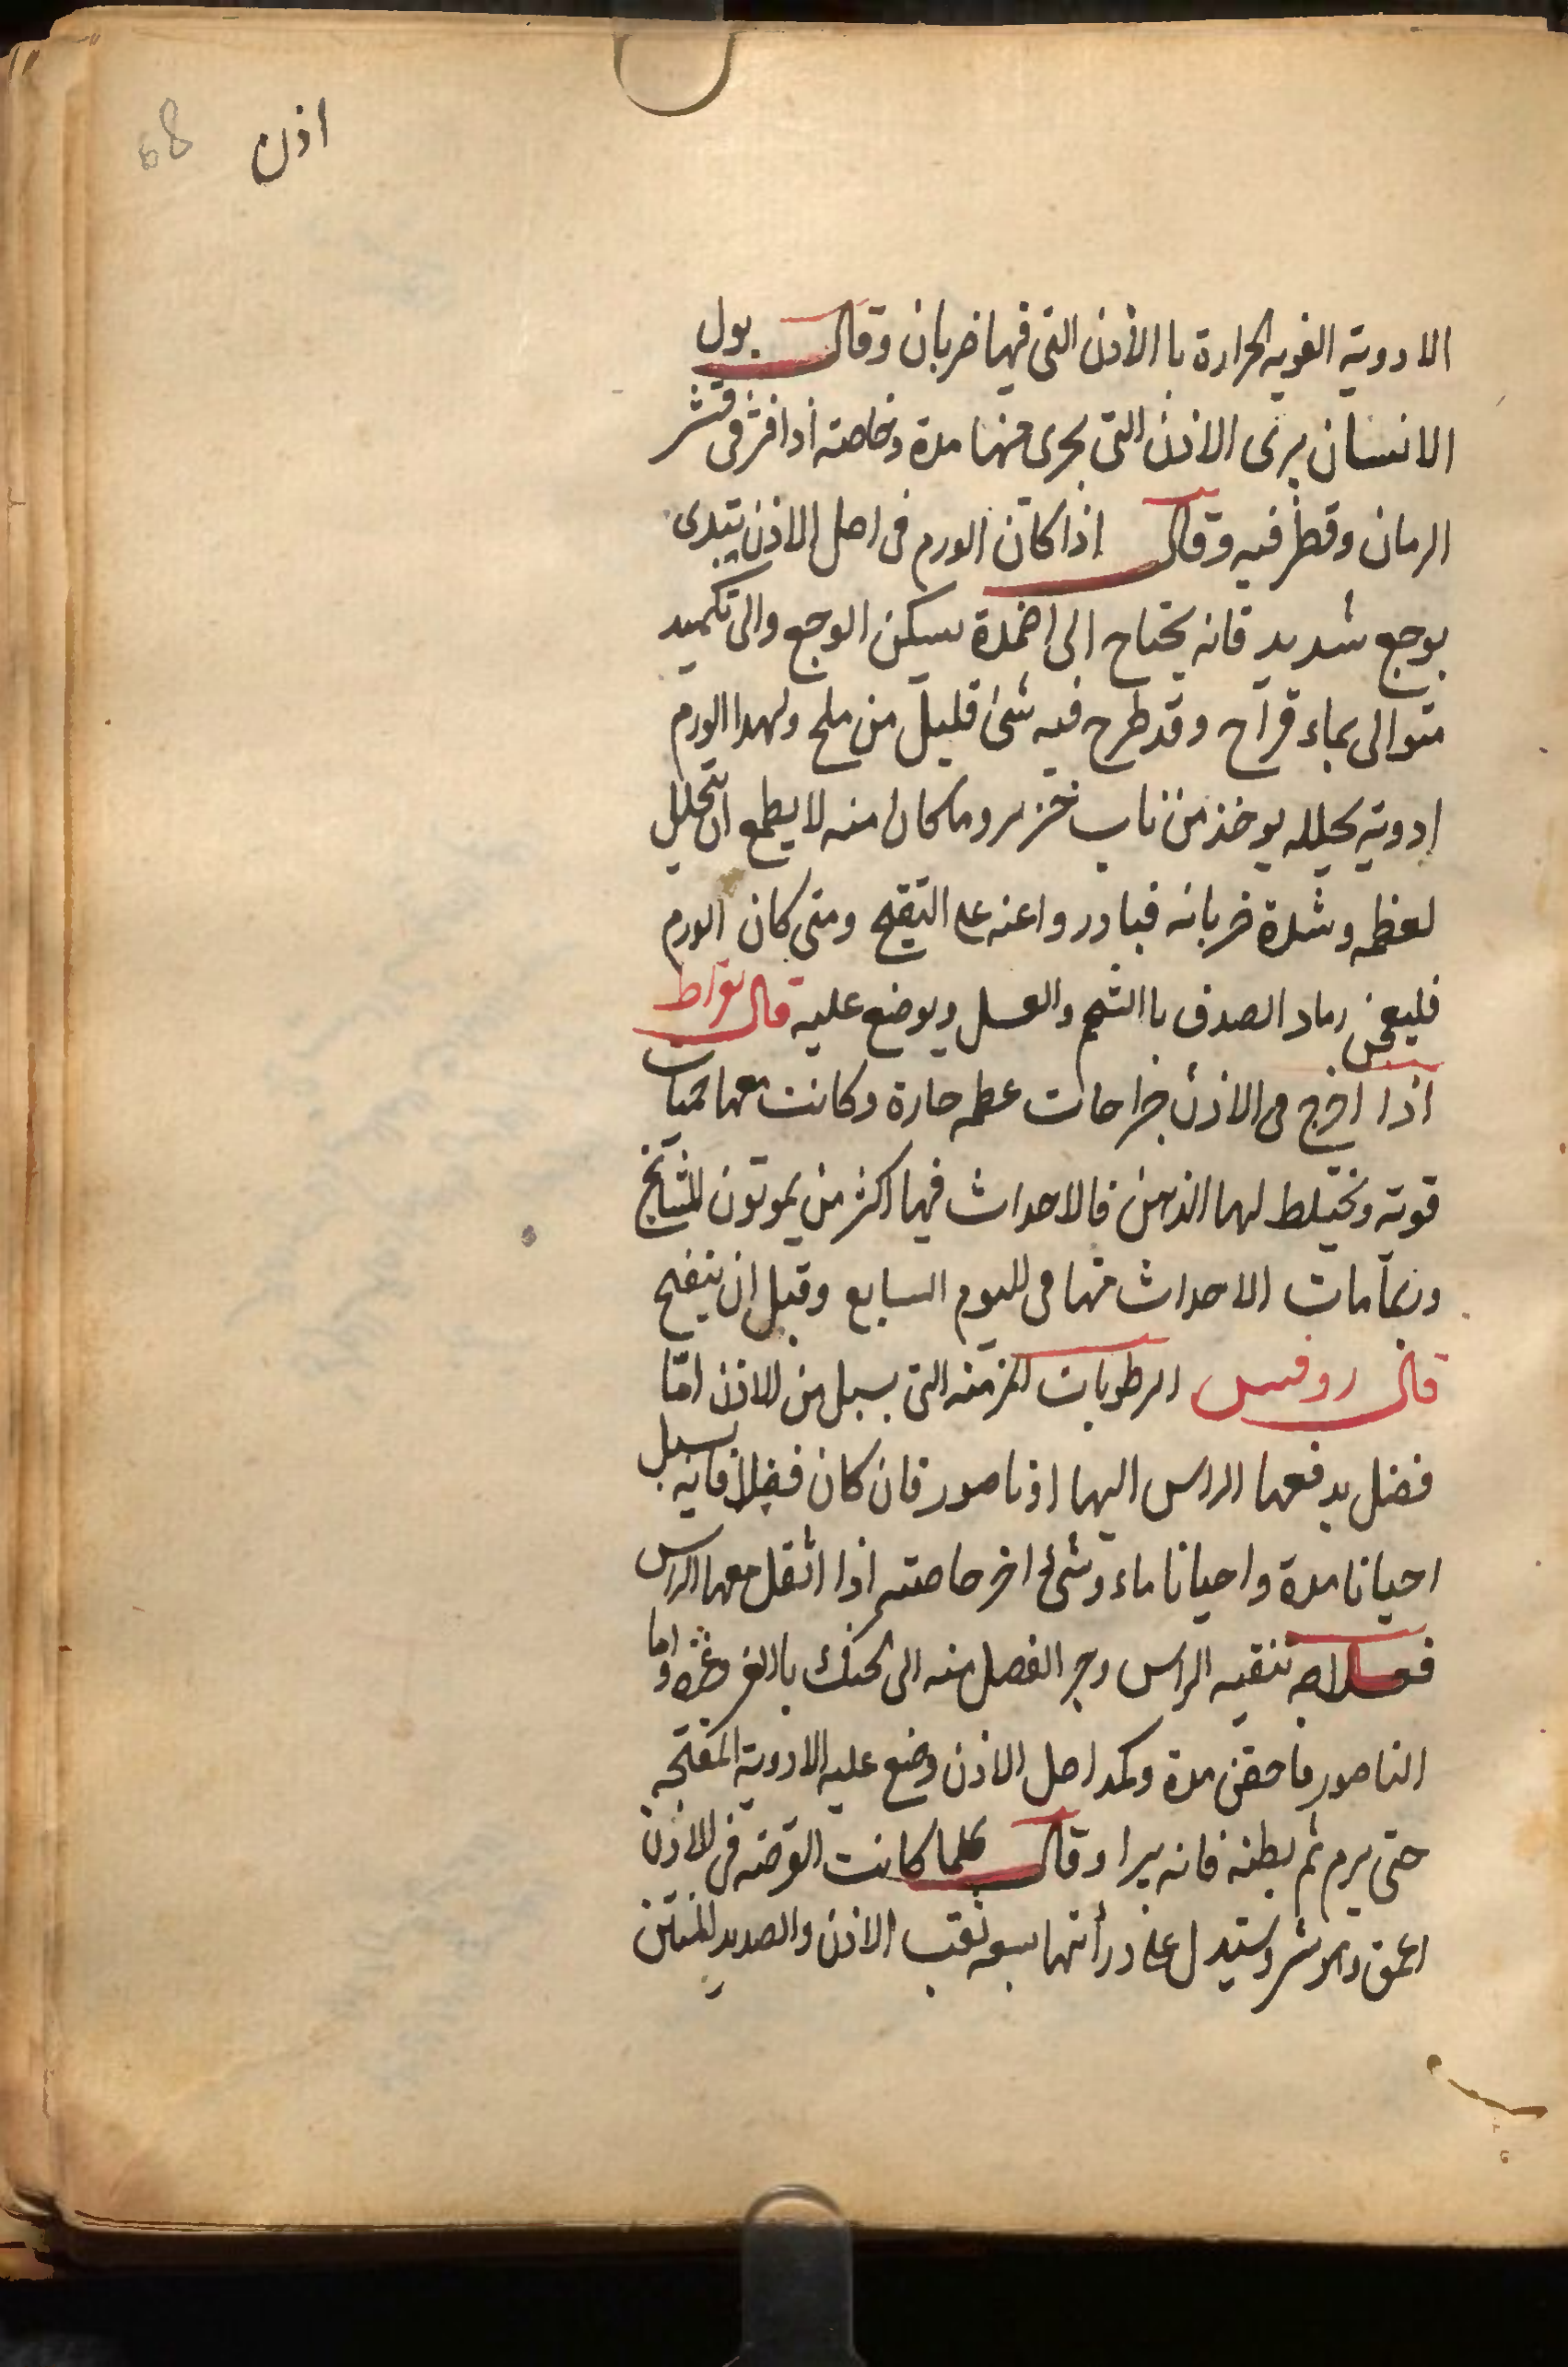 اذن 68
الادوية القويه الحرارة باالأذن التى فيها ضربان وقال بول
الانسان يرى الاذن التى يجرى منها مدة وخاصته اذا فتر فى قشر
الرمان وقطر فيه وقال اذا كان الورم فى اصل الاذن يتبدى
بوجع شديد فانه يحتاج الى اضمدة يسكن الوجع والى تكميد
متوالى بماء قراح وقد طرح فيه شئ قليل من ملح ولهدا الورم
ادوية يحلله يوخذ من ناب خنزير وما كان منه لا يطمع ان يتحلل
لعظمه وشدة ضربانه فبادر واعنه على التقيح ومتى كان الورم
فليعجن رماد الصدف باالشحم والعسل ويوضع عليه قال بقراط
اذا اخرج فى الاذن جراحات عطمه حارة وكانت معها حميات
قوية ويختلط لها الذهن فالاحداث فيها اكثر من يموتون للمشايخ
وربما مات الاحداث منها فى لليوم السابع وقبل ان ينفتح
قال روفس الرطوبات المزمنه التى يسيل من الاذن امّا
فضل يدفعها الراس اليها او ناصور فان كان فضلا فانه يسيل
احيانا مدة واحيانا ماء وشئ اخر خاصته اذا اثقل معها الراس
فعلاجه تنقيه الراس وجر الفضل منه الى الحنك باالغرغره واما
الناصور فاحقن مدة وكمد اصل الاذن وضع عليه الادوية المفتحه
حتى يرم ثم بطنه فانه يبرا وقال كلما كانت القرحه فى الاذن
اعمق وهو شر ويستدل على دراتها بسعه ثقب الاذن والصديد المنتن